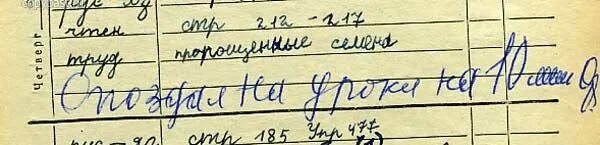 рус яз
чтен стр 212-217
Четверг
труд пророщенные семена
Опоздал на уроки на 10 мин
рус-яз стр 185 Упр 477